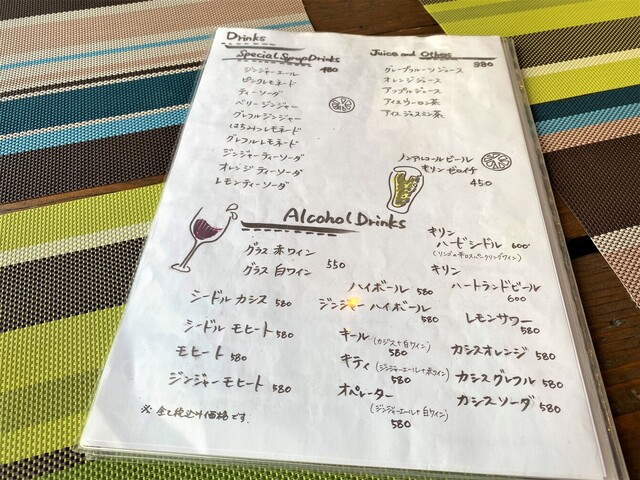 Drinks
Special Syrup Drinks
480
ジンジャーエール
ピンクレモネード
ティーソーダ
ベリージンジャー
グレフルジンジャー
はちみつレモネード
グレフルレモネード
ジンジャーティーソーダ
オレンジティーソーダ
レモンティーソーダ
Juice and Others
380
グレープフルーツジュース
オレンジジュース
アップルジュース
アイスウーロン茶
アイスジャスミン茶
ノンアルコールビール
キリンゼロイチ
450
Alcohol Drinks
グラス 赤ワイン
グラス 白ワイン
550
シードル カシス 580
シードル モヒート 580
モヒート 580
ジンジャーモヒート 580
ハイボール 580
ジンジャーハイボール
580
キール (カシス+白ワイン)
580
キティ (ジンジャーエール+赤ワイン)
580
オペレーター
(ジンジャーエール+白ワイン)
580
キリン
ハードシードル 600
(リンゴの辛口スパークリングワイン)
キリン
ハートランドビール
600
レモンサワー
580
カシスオレンジ 580
カシスグレフル 580
カシスソーダ 580
※全て税込み価格です。